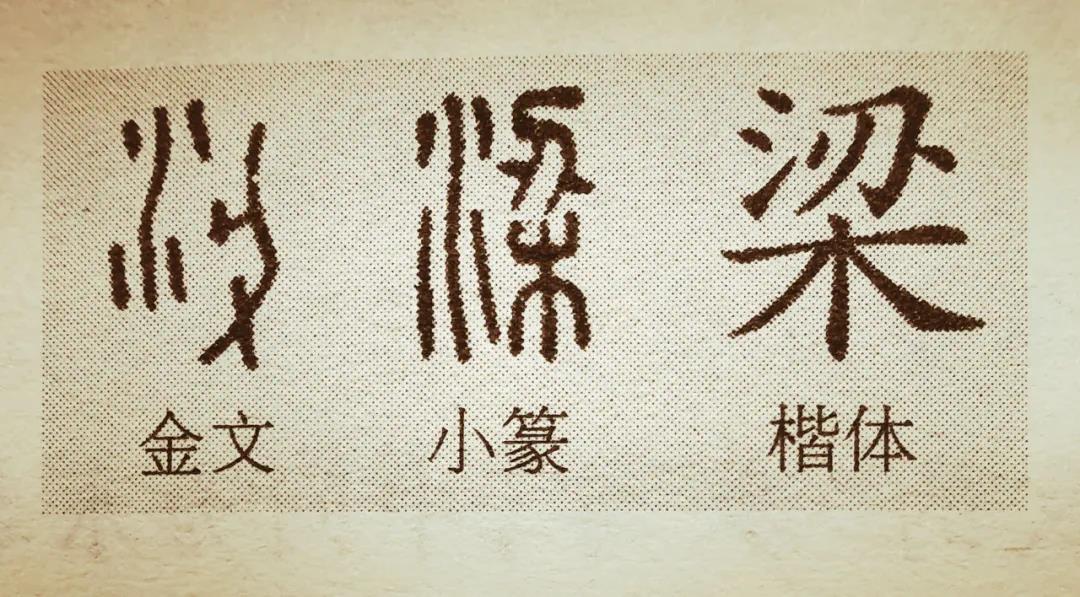 梁
金文 小篆 楷体